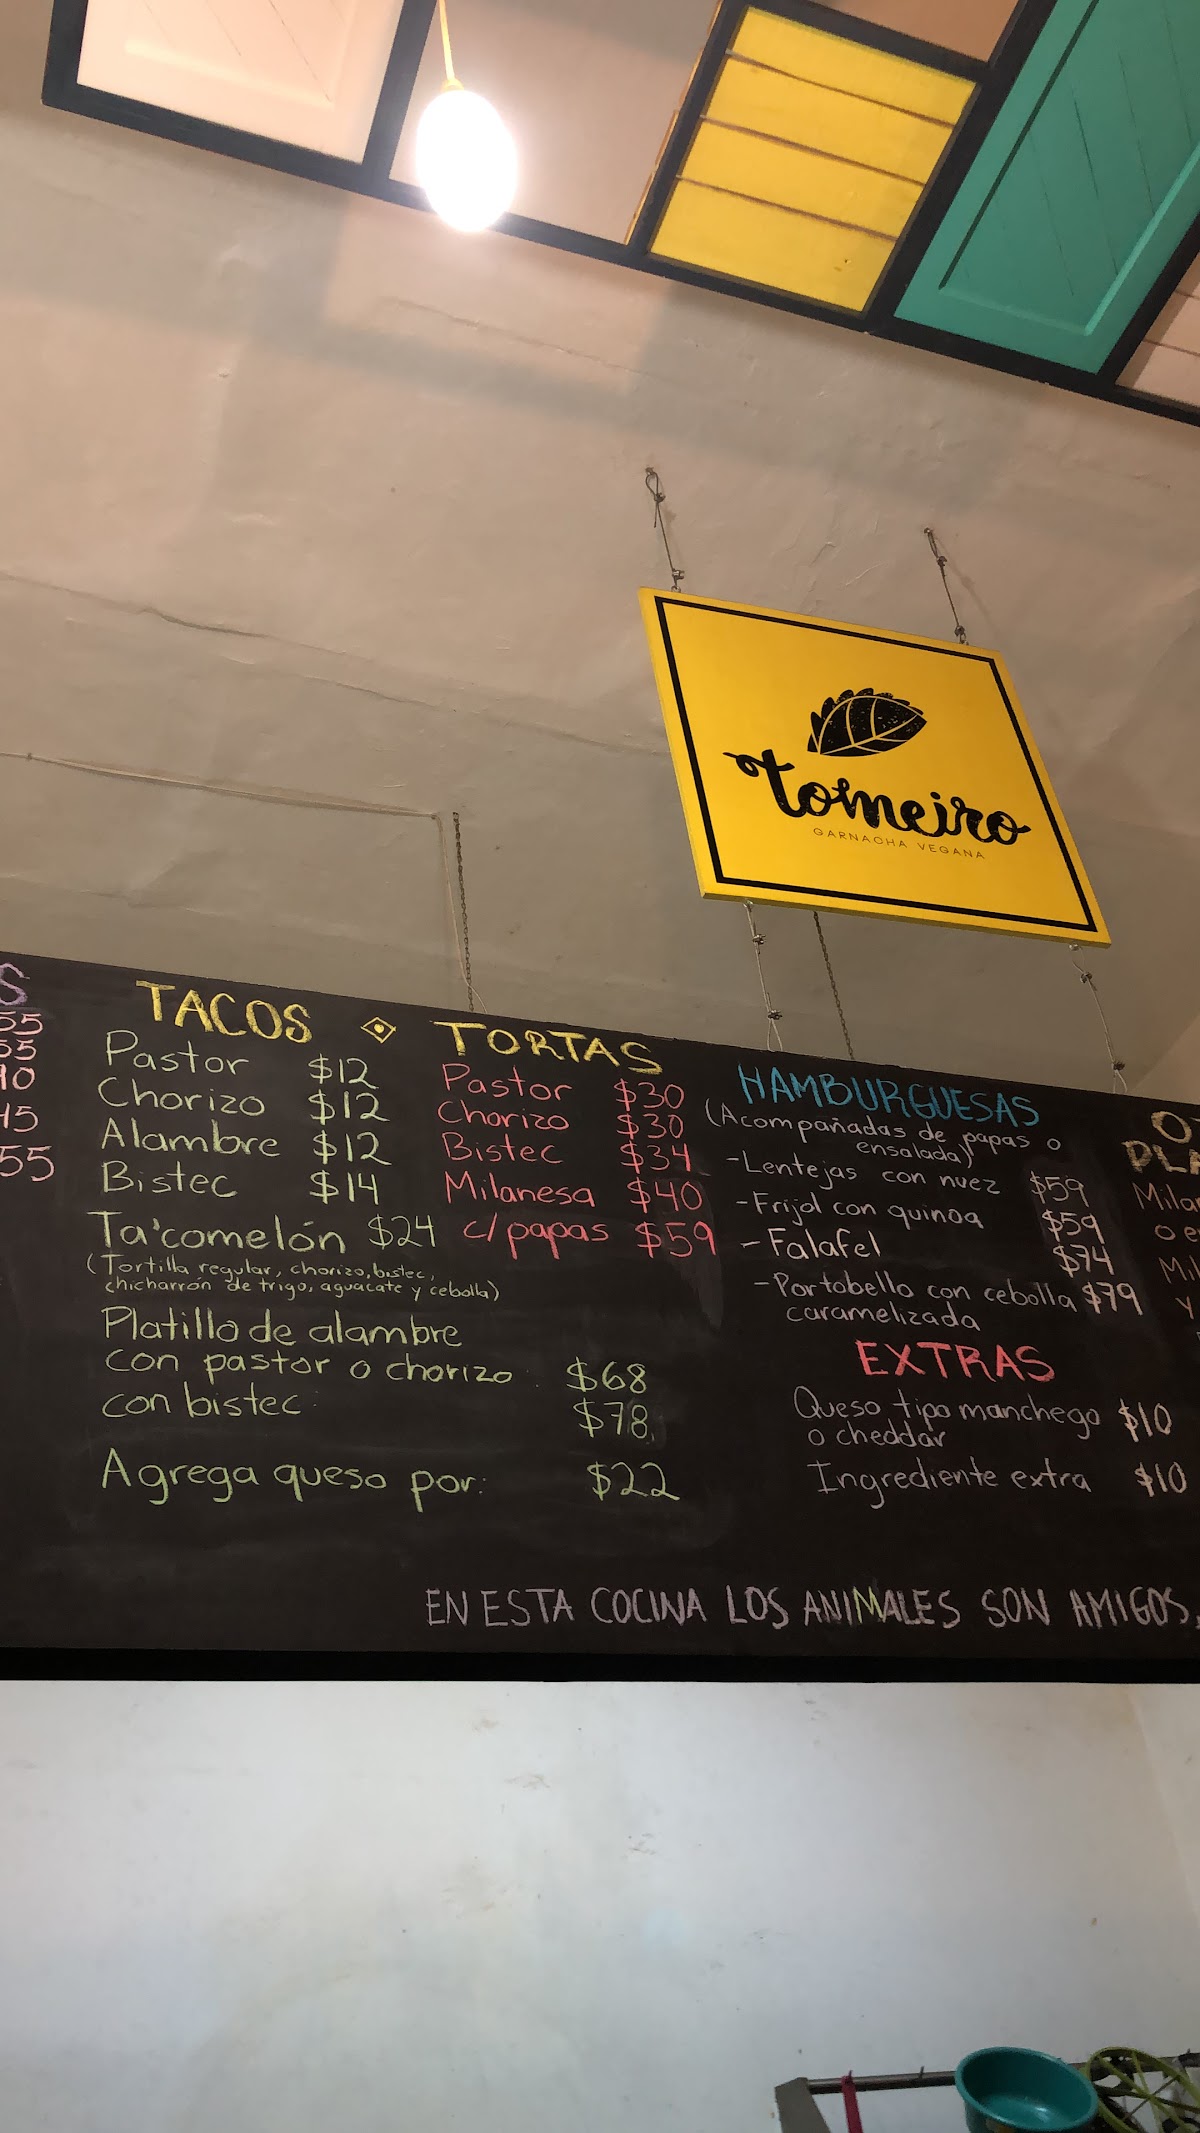 tomeiro
GARNACHA VEGANA
S
55
55
40
45
55
TACOS
Pastor $12
Chorizo $12
Alambre $12
Bistec $14
Ta'comelón $24
(Tortilla regular, chorizo, bistec,
chicharrón de trigo, aguacate y cebolla)
Platillo de alambre
con pastor o chorizo: $68
con bistec: $78
Agrega queso por: $22
TORTAS
Pastor $30
Chorizo $30
Bistec $34
Milanesa $40
c/papas $59
HAMBURGUESAS
(Acompañadas de papas o
ensalada)
-Lentejas con nuez $59
-Frijol con quinoa $59
-Falafel $74
-Portobello con cebolla $79
caramelizada
EXTRAS
Queso tipo manchego $10
o cheddar
Ingrediente extra $10
O
PLA
Mila
o e
Mil
y
EN ESTA COCINA LOS ANIMALES SON AMIGOS,